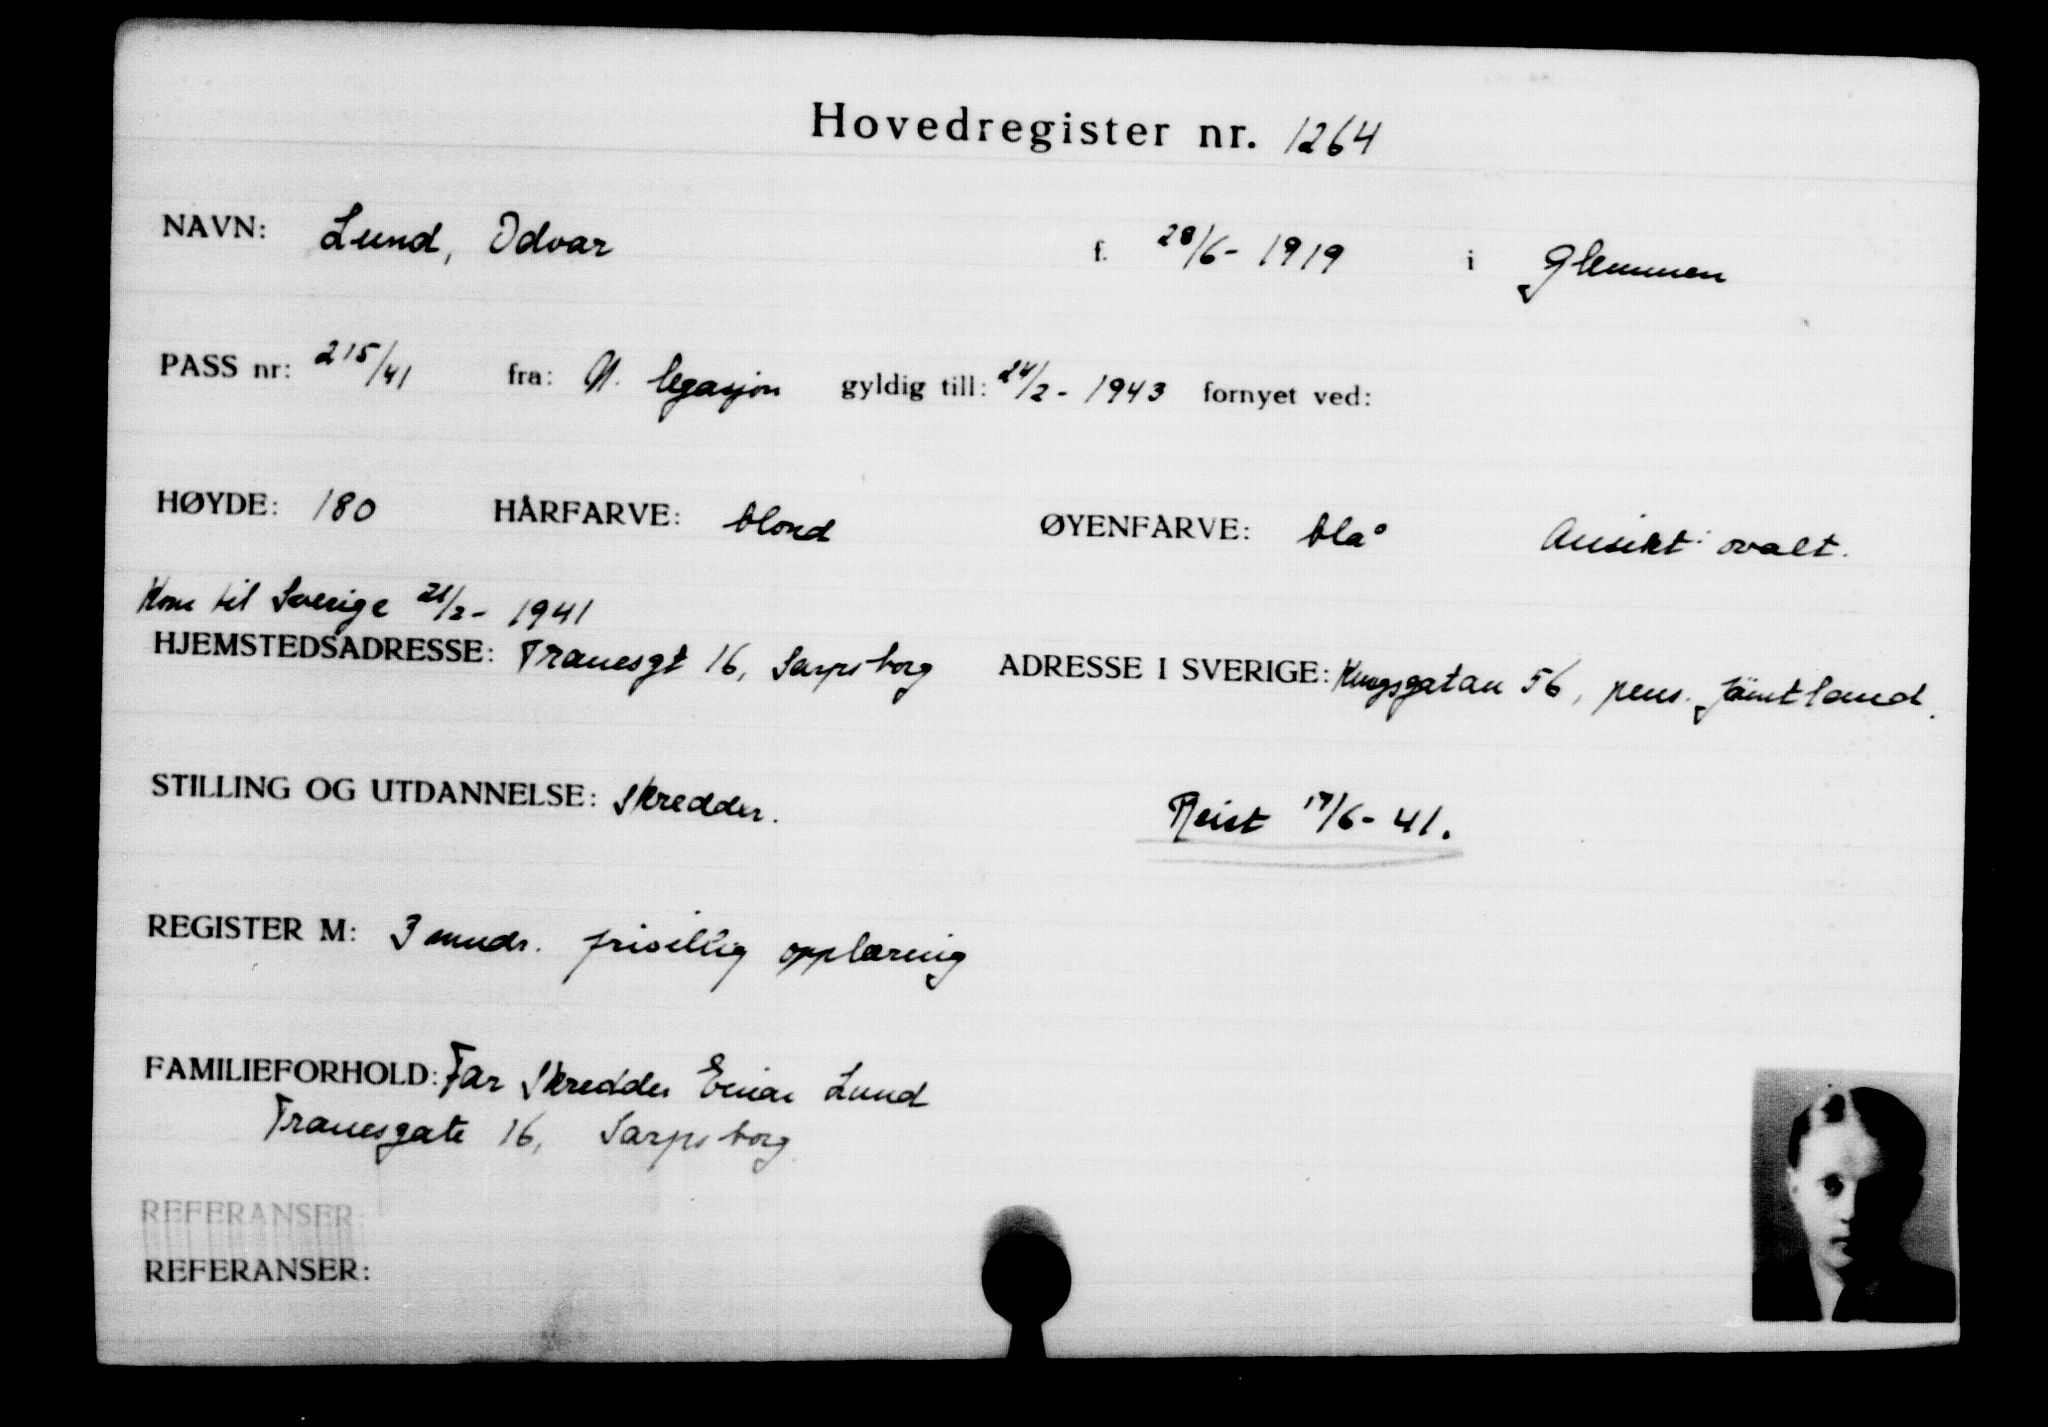 Hovedregister nr. 1264
NAVN: Lund, Odvar f. 28/6- 1919 i Glemmen
PASS nr: 215/41 fra: N. legasjon gyldig till: 24/2- 1943 fornyet ved:
HØYDE: 180 HÅRFARVE: blond ØYENFARVE: blå Ansikt: ovalt.
Kom til Sverige 21/2- 1941
HJEMSTEDSADRESSE: Tranesgt 16, Sarpsborg ADRESSE I SVERIGE: Kungsgatan 56, pens. Jämtland.
STILLING OG UTDANNELSE: Skredder. Reist 17/6- 41.
REGISTER M: 3 mndr. frivillig opplæring
FAMILIEFORHOLD: Far Skredder Einar Lund
Tranesgate 16, Sarpsborg
REFERANSER:
REFERANSER: